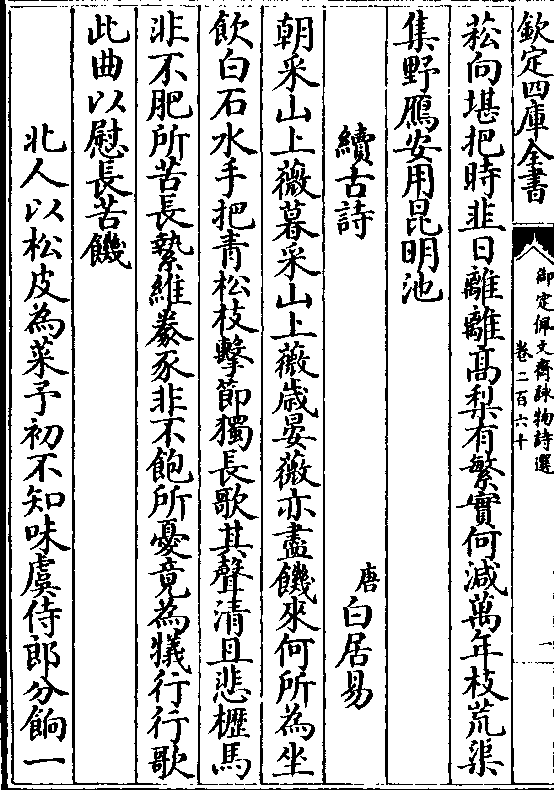 欽定四庫全書
御定佩文齋詠物詩選
卷二百六十
一
菘向堪把時韭日離離高梨有繁實何減萬年枝荒渠
集野鴈安用昆明池
續古詩
唐白居易
朝采山上薇暮采山上薇歲晏薇亦盡饑來何所為坐
飲白石水手把青松枝擊節獨長歌其聲清且悲櫪馬
非不肥所苦長縶維豢豕非不飽所憂竟為犧行行歌
此曲以慰長苦饑
北人以松皮為菜予初不知味虞侍郎分餉一